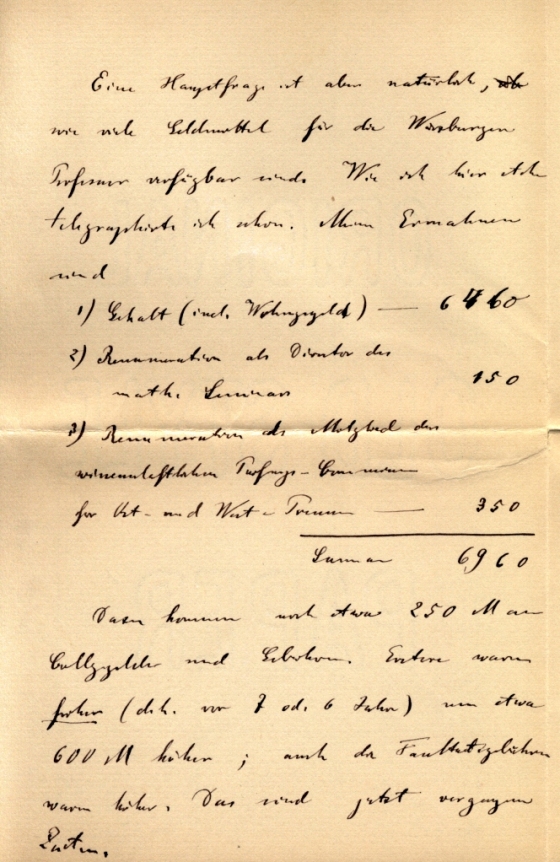 Eine Hauptfrage ist aber natürlich,
wie viele Geldmittel für die Würzburger
Professur verfügbar sind. Wie ich hier stehe
telegraphirte ich schon. Meine Einnahmen
sind
1) Gehalt (incl. Wohngsgeld) — 6460
2) Remuneration als Director des
math. Seminars 150
3) Remuneration als Mitglied der
wissenschaftlichen Prüfungs-Commission
für Ost- und West-Preussen — 350
Summa 6960
Dazu kommen noch etwa 250 M an
Collggelder und Gebühren. Erstere waren
früher (d.h. vor 7 od. 6 Jahren) um etwa
600 M höher; auch die Facultätsgebühren
waren höher. Das sind jetzt vergangene
Zeiten.